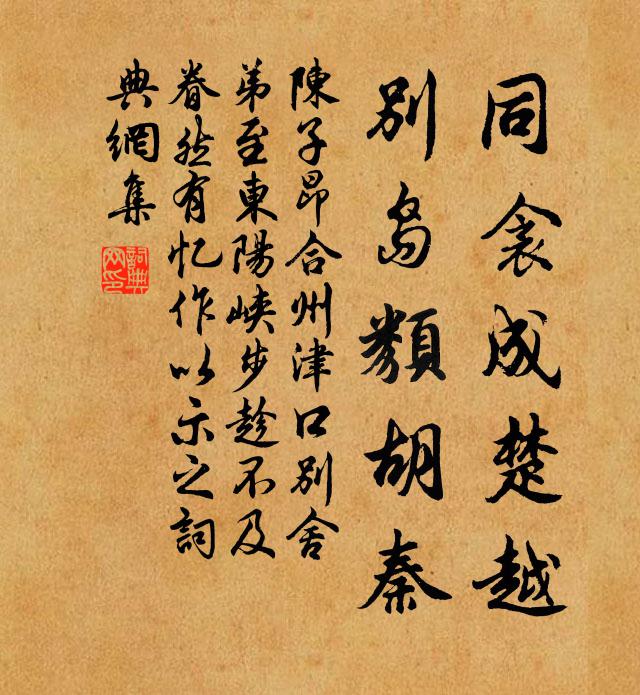 同衾成楚越
別島類胡秦
陳子昂合州津口別舍
弟至東陽峽步趁不及
眷然有忆作以示之詞
典網集
詞典網印